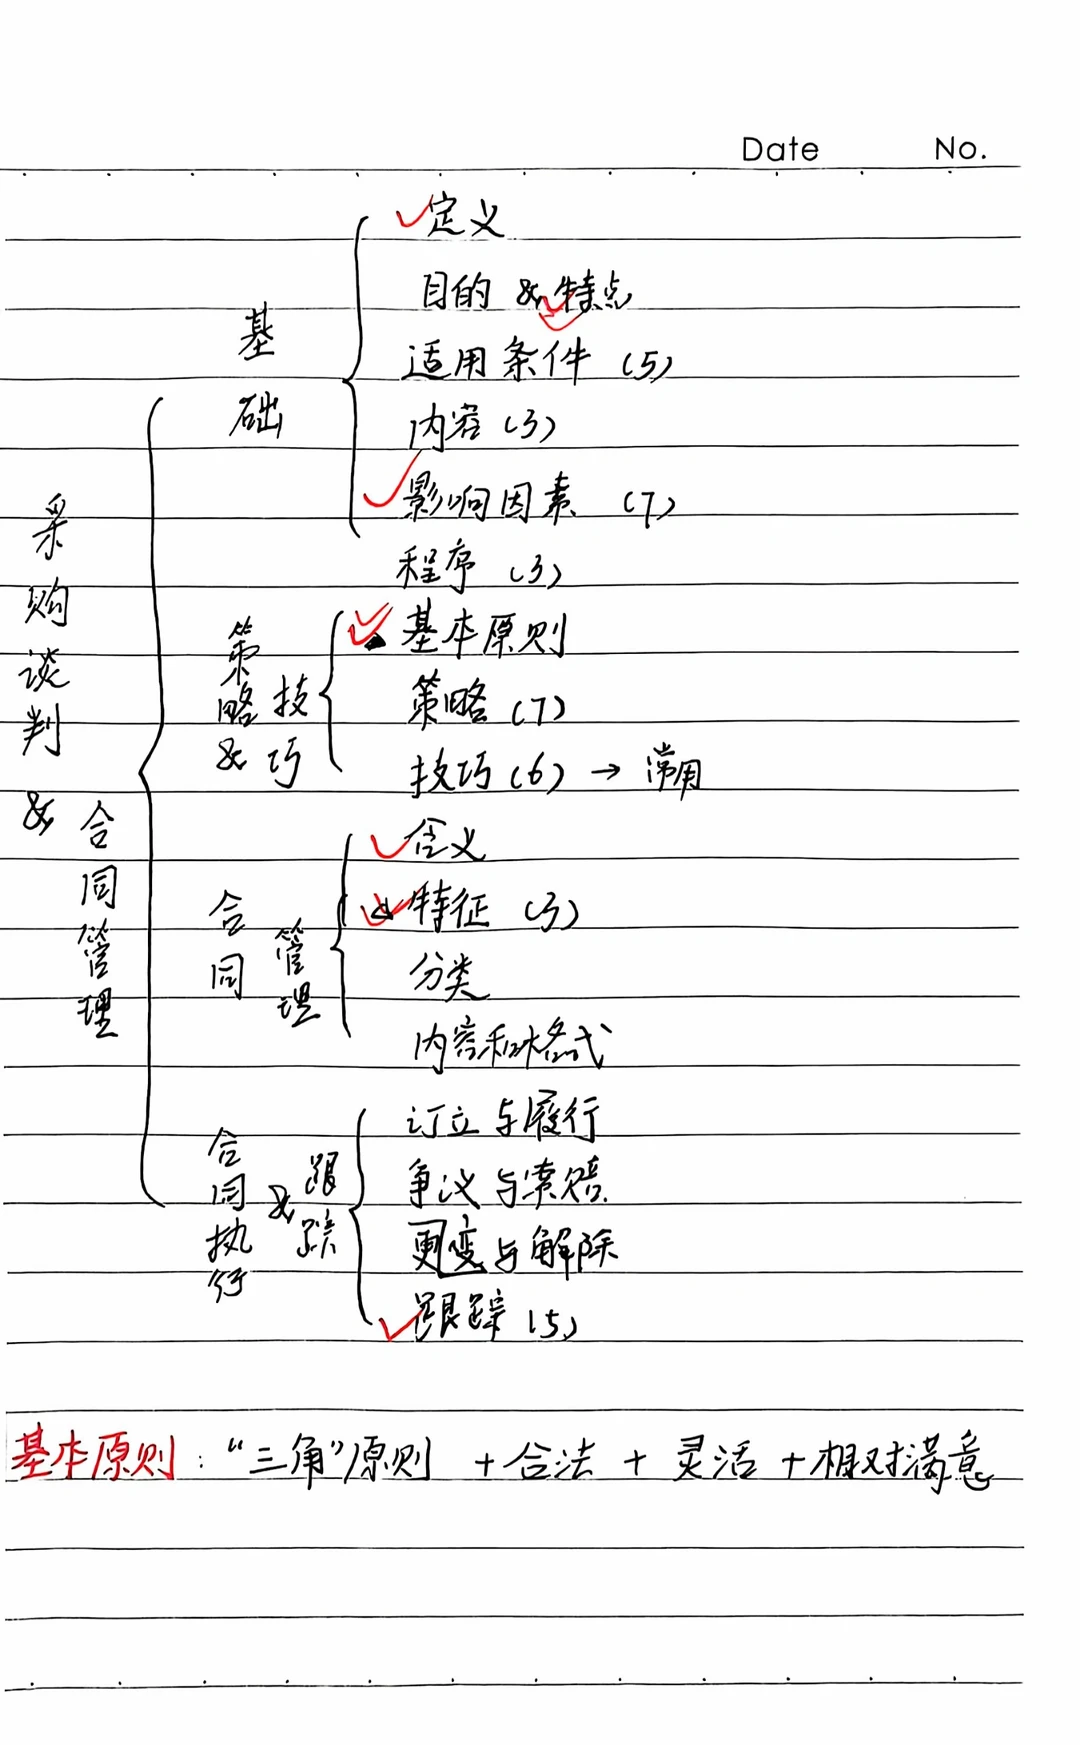 Date No.
采购谈判 & 合同管理
基础
定义
目的 & 特点
适用条件 (5)
内容 (3)
影响因素 (7)
程序 (3)
策略 & 技巧
基本原则
策略 (7)
技巧 (6) → 常用
合同管理
含义
特征 (3)
分类
内容和格式
合同执行 & 跟踪
订立与履行
争议与索赔
更变与解除
跟踪 (5)
基本原则：“三角”原则 + 合法 + 灵活 + 相对满意